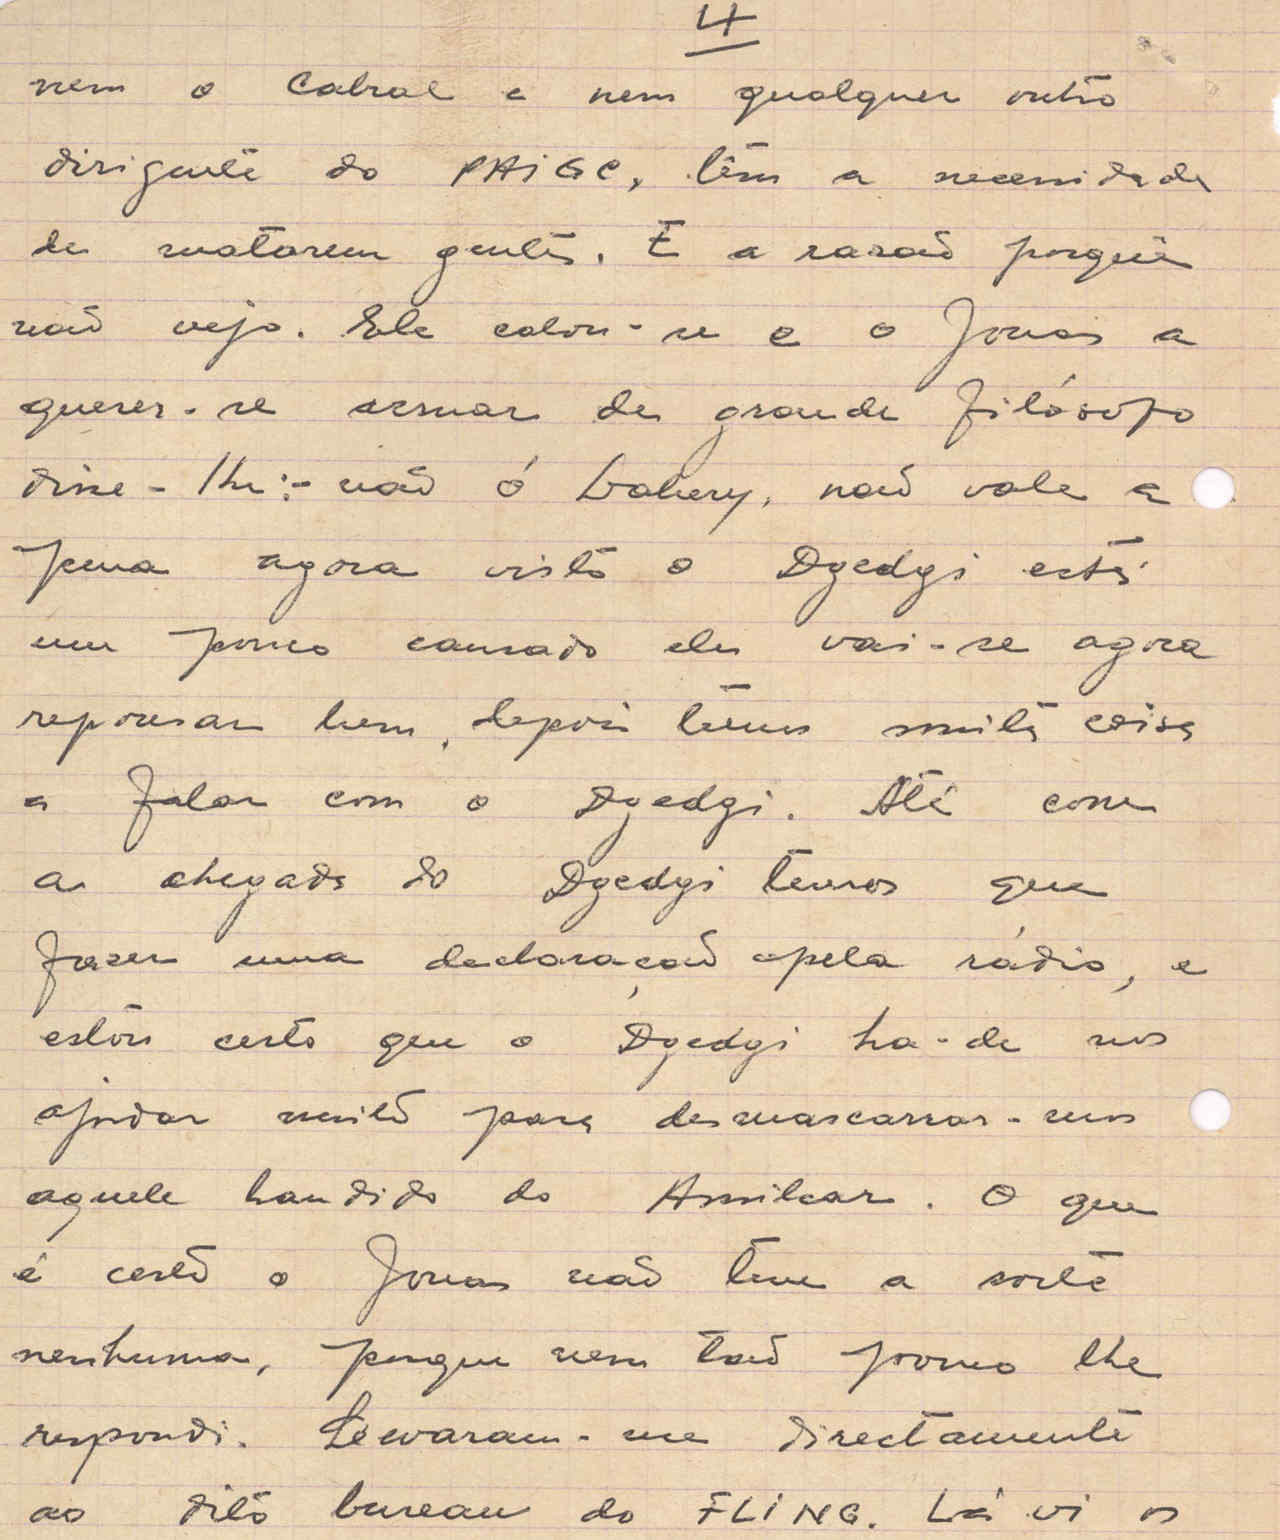 4
nem o Cabral e nem qualquer outro
dirigente do PAIGC, têm a necessidade
de matarem gentes. E a rasaõ porquê
naõ vejo. Ele calou-se e o Jonas a
querer-se armar de grande filósofo
disse-lhe:- naõ ó Lakery, naõ vale a
pena agora visto o Dgedgi está
um pouco cansado ele vai-se agora
repousar bem, depois temos muita coisa
a falar com o Dgedgi. Até com
a chegada do Dgedgi temos que
fazer uma declaraçaõ pela rádio, e
estou certo que o Dgedgi ha-de nos
ajudar muito para desmascarrar-mos
aquele bandido do Amilcar. O que
é certo o Jonas naõ teve a sorte
nenhuma, porque nem taõ pouco lhe
respondi. Levaram-me directamente
ao dito bureau do FLING. Lá vi os